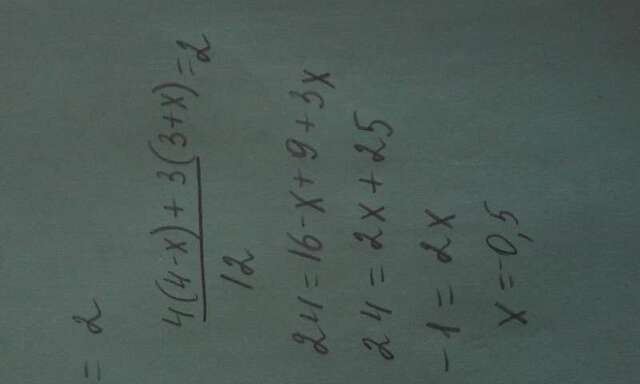 = 2
4(4-x) + 3(3+x) = 2
12
24 = 16 - x + 9 + 3x
24 = 2x + 25
-1 = 2x
x = -0,5